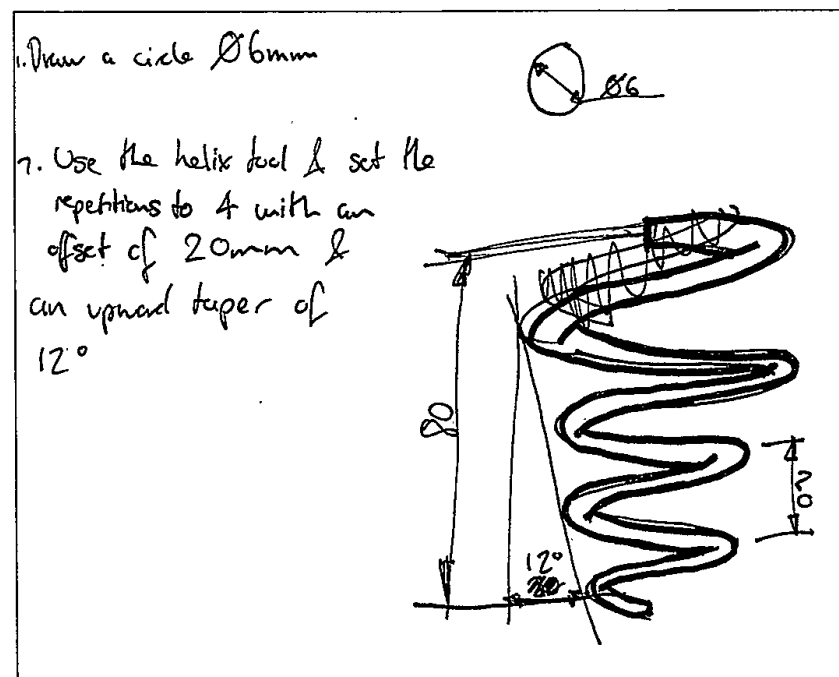 1. Draw a circle Ø6mm
Ø6
2. Use the helix tool & set the
repetitions to 4 with an
offset of 20mm &
an upward taper of
12°
80
20
12°